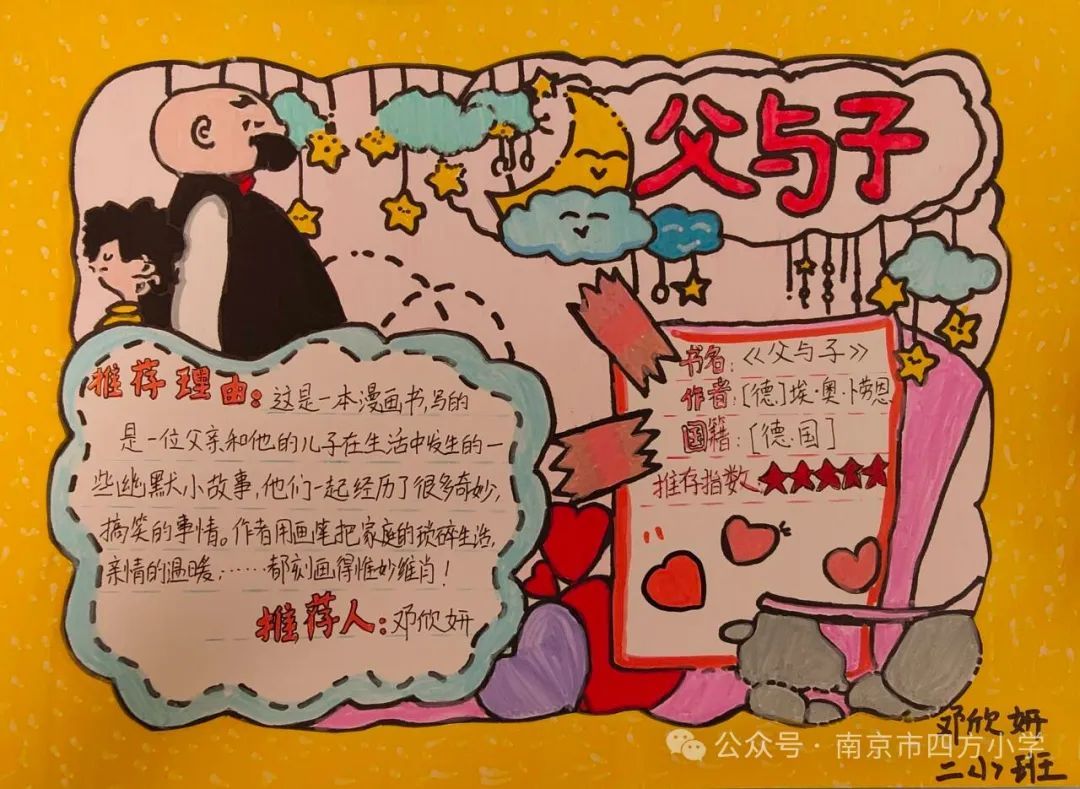 父与子
推荐理由：这是一本漫画书，写的
是一位父亲和他的儿子在生活中发生的一
些幽默小故事，他们一起经历了很多奇妙，
搞笑的事情。作者用画笔把家庭的琐碎生活，
亲情的温暖，……都刻画得惟妙维肖！
推荐人：邓欣妍
书名：《父与子》
作者：[德]埃·奥·卜劳恩
国籍：[德·国]
推存指数：★★★★★
邓欣妍
二小7班
公众号·南京市四方小学